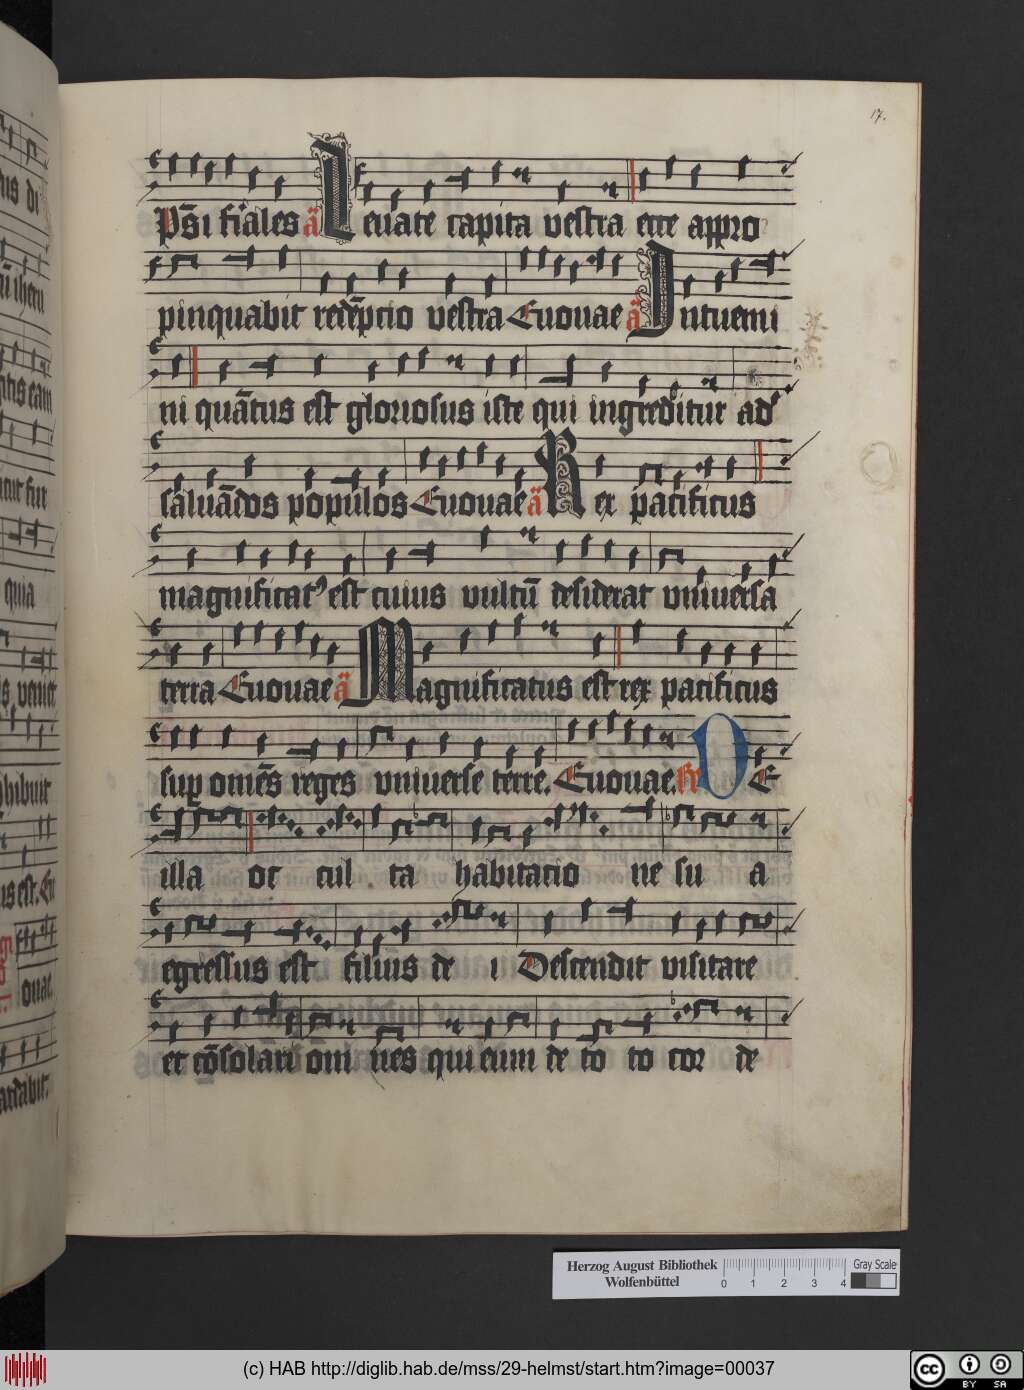 17.
Ps̄i fīales ā Leuate capita vestra ecce appro
pinquabit redēptio vestra Euouae ā Intuemi
ni quātus est gloriosus iste qui ingreditur ad
saluādos populos Euouae ā Rex pacificus
magnificatꝰ est cuius vultū desiderat vniuersa
terra Euouae ā Magnificatus est rex pacificus
sup omēs reges vniuerse terre. Euouae. DE
illa oc cul ta habitacio ne su a
egressus est filius de i Descendit visitare
et cōsolari om nes qui eum de to to cor de
Herzog August Bibliothek
Wolfenbüttel
0 1 2 3 4
Gray Scale
(c) HAB http://diglib.hab.de/mss/29-helmst/start.htm?image=00037
cc BY SA